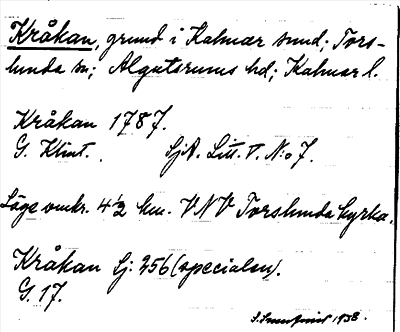 Kråkan, grund i Kalmar sund; Tors-
lunda sn; Algutsrums hd; Kalmar l.
Kråkan 1787.
G. Klint. SjA. Litt. V. N:o 7.
Läge omkr. 4 1/2 km. VNV Torslunda kyrka.
Kråkan Sj: 256 (specialen).
G. 17.
1938.